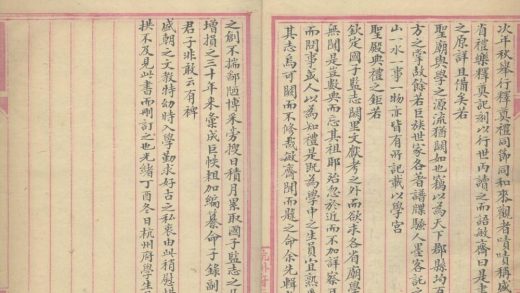 次年秋舉行釋奠禮同來觀者嘖嘖稱盛
省禮樂釋奠記刻以行世丙讀之而語敏齋曰是書
之原詳且備矣若
聖廟與學之源流猶闕如也竊以為天下郡縣均
方之掌故餘若巨族世家各著譜牒騷人墨客記之
山一水一事一物亦皆有所記載以學宮
聖殿典禮之鉅若
欽定國子監志闕里文獻考之外而欲求各省廟學
無聞是豈數典而忘其祖耶忽於近而不加詳察
而問事或人以為知禮是既為學中之生員宜熟
其志烏可闕而不修哉敏齋聞而韙之命余先輯
之創不揣鄙陋博采旁搜日積月累取國子監志之
增損之三十年來彙成巨帙粗加編纂命子錄副
君子非敢云有裨
盛朝之文教特幼時入學勤求好古之私衷由此稍慰
拱不及見此書而刪訂之也光緒丁酉冬日杭州府學生